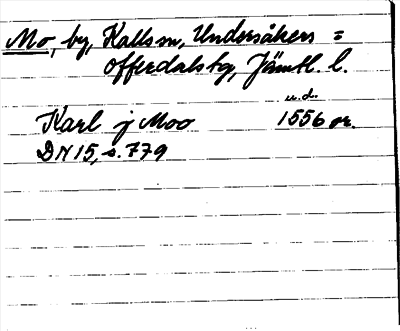 Mo, by, Kalls sn, Undersåkers =
Offerdals tg, Jämtl. l.
u.d.
Karl j Moo 1556 or.
DN 15, s. 779